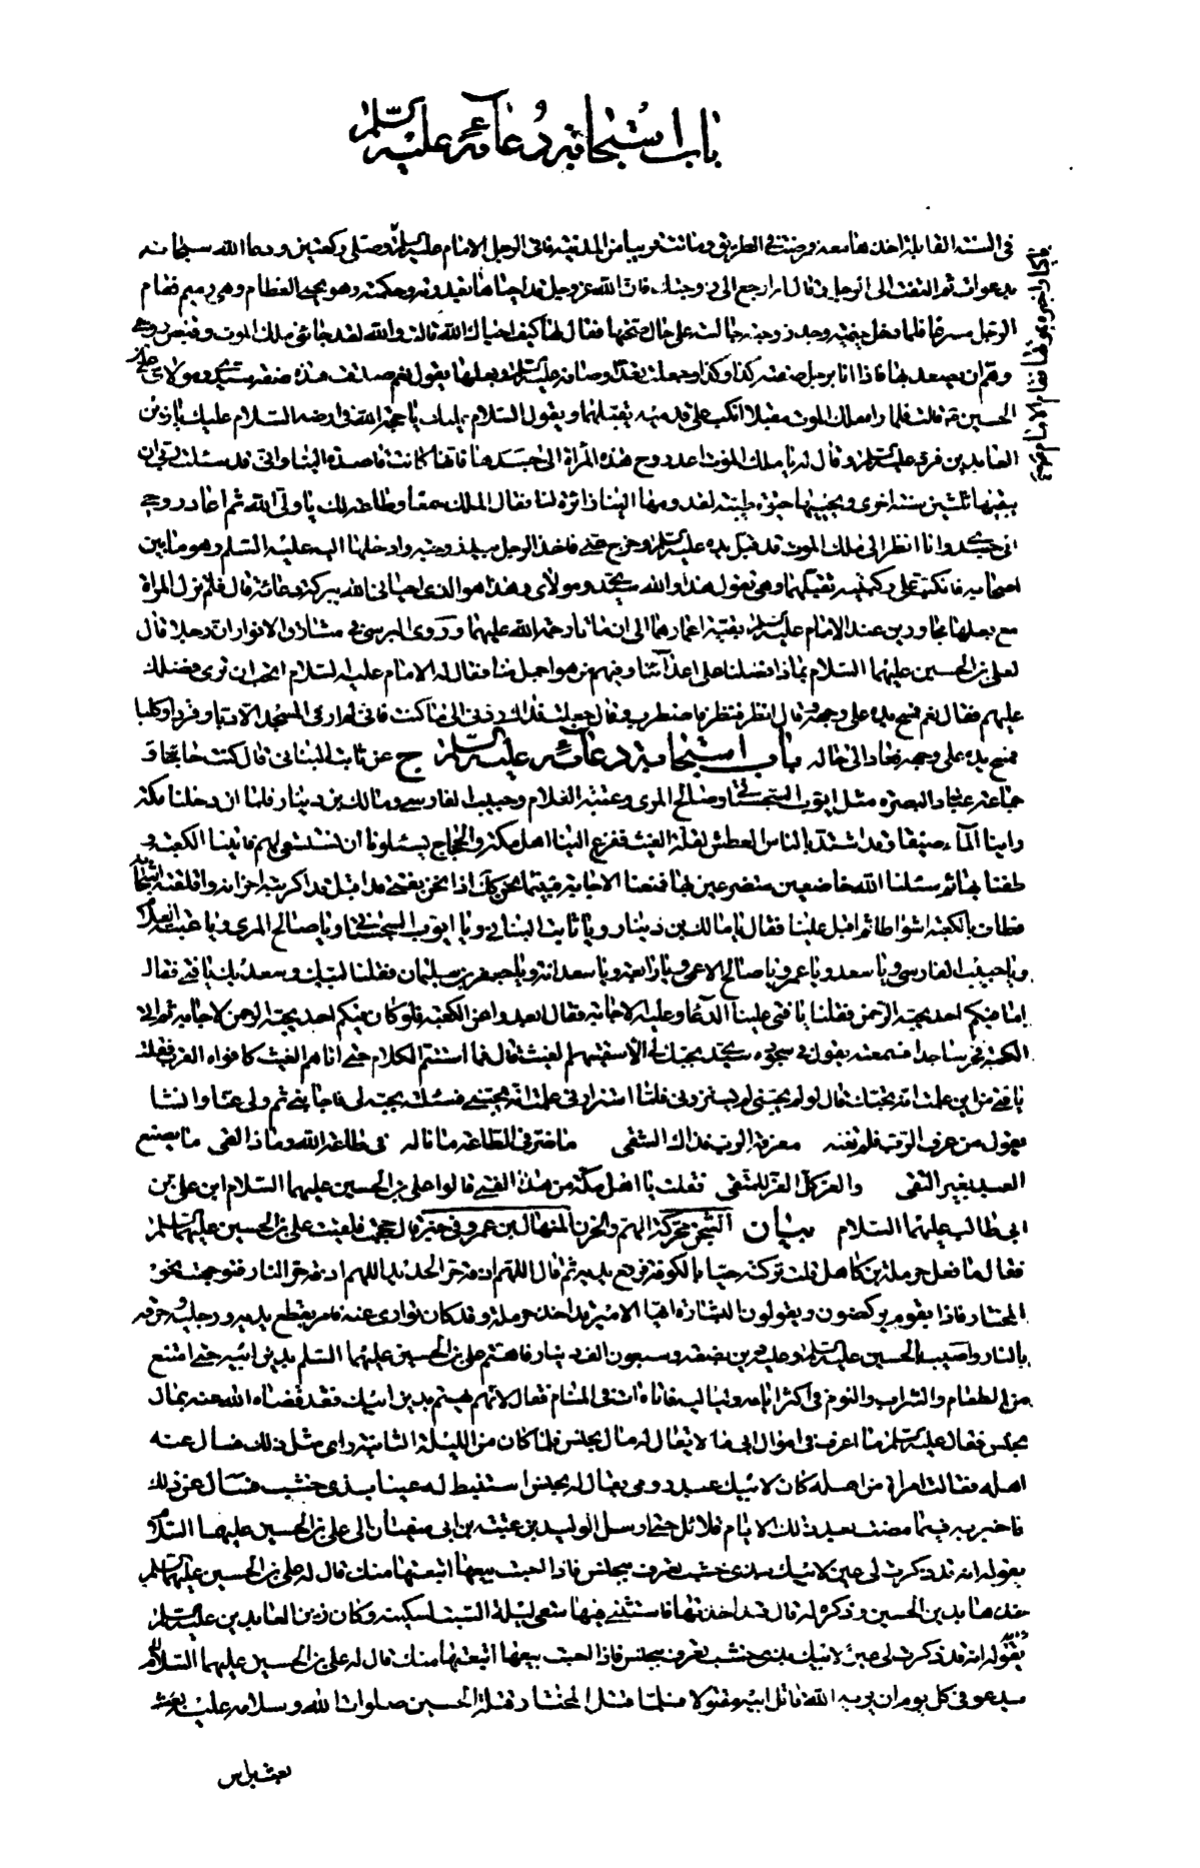 باب استجابة دعائه عليه السلام
في السنة القابلة اخذها معه فمرضت في الطريق وماتت قريبا من المدينة فاتى الرجل الامام عليه السلام وصلى ركعتين ودعا الله سبحانه
بدعوات ثم التفت الى الرجل وقال له ارجع الى زوجتك فان الله عز وجل قد احياها بقدرته وحكمته وهو يحيي العظام وهي رميم فقام
الرجل مسرعا فلما دخل خيمته وجد زوجته جالسة على حال صحتها فقال لها كيف احياك الله قالت والله لقد جاءني ملك الموت وقبض روحي
وهم ان يصعد بها فاذا انا برجل صفته كذا وكذا وجعلت تعد اوصافه عليه السلام وبعلها يقول نعم صدقت هذه صفة سيدي ومولاي علي بن
الحسين ع قالت فلما راه ملك الموت مقبلا انكب على قدميه يقبلهما ويقول السلام عليك يا حجة الله في ارضه السلام عليك يا زين
العابدين فرد عليه السلام وقال له يا ملك الموت اعد روح هذه المراة الى جسدها فانها كانت قاصدة الينا واني قد سئلت ربي ان
يبقيها ثلثين سنة اخرى ويحييها حيوة طيبة لقدومها الينا زائرة لنا فقال الملك سمعا وطاعة لك يا ولي الله ثم اعاد روحي
الى جسدي وانا انظر الى ملك الموت قد قبل يده عليه السلام وخرج عني فاخذ الرجل بيد زوجته وادخلها اليه عليه السلم وهو ما بين
اصحابه فانكبت على ركبتيه تقبلهما وهي تقول هذا والله سيدي ومولاي وهذا هو الذي احياني الله ببركة دعائه قال فلم تزل المراة
مع بعلها مجاورين عند الامام عليه السلام بقية اعمارهما الى ان ماتا رحمة الله عليهما وروى البرسي في مشارق الانوار ان رجلا قال
لعلي بن الحسين عليهما السلام بماذا فضلنا على اعدائنا وفيهم من هو اجمل منا فقال له الامام عليه السلام اتحب ان ترى فضلك
عليهم فقال نعم فمسح يده على وجهه وقال انظر فنظر فاضطرب وقال جعلت فداك ردني الى ما كنت فاني لم ار في المسجد الا دبا وقردا وكلبا
فمسح يده على وجهه فعاد الى حاله باب استجابة دعائه عليه السلام ج عن ثابت البناني قال كنت حاجا و
جماعة عباد البصرة مثل ايوب السجستاني وصالح المري وعتبة الغلام وحبيب الفارسي ومالك بن دينار فلما ان دخلنا مكة
راينا الماء ضيقا وقد اشتد بالناس العطش لقلة الغيث ففزع الينا اهل مكة والحجاج يسئلونا ان نستسقي لهم فاتينا الكعبة و
طفنا بها ثم سئلنا الله خاضعين متضرعين بها فمنعنا الاجابة فبينما نحن كك اذا نحن بفتى قد اقبل قد اكربته احزانه واقلقته اشجانه
فطاف بالكعبة اشواطا ثم اقبل علينا فقال يا مالك بن دينار ويا ثابت البناني ويا ايوب السجستاني ويا صالح المري ويا عتبة الغلام
ويا حبيب الفارسي ويا سعد ويا عمر ويا صالح الاعمى ويا رابعة ويا سعدانة ويا جعفر بن سليمان فقلنا لبيك وسعديك يا فتى فقال
اما فيكم احد يحبه الرحمن فقلنا يا فتى علينا الدعاء وعليه الاجابة فقال ابعدوا عن الكعبة فلو كان فيكم احد يحبه الرحمن لاجابه ثم اتى
الكعبة فخر ساجدا فسمعته يقول في سجوده سيدي بحبك لي الا سقيتهم الغيث قال فما استتم الكلام حتى اتاهم الغيث كافواه القرب فقلت
يا فتى من اين علمت انه يحبك قال لو لم يحبني لم يستزرني فلما استزارني علمت انه يحبني فسئلته بحبه لي فاجابني ثم ولى عنا وانشا
يقول من عرف الرب فلم تغنه معرفة الرب فذاك الشقي ما ضر في الطاعة ما ناله في طاعة الله وماذا لقي ما يصنع
العبد بغير التقى والعز كل العز للمتقي فقلت يا اهل مكة من هذا الفتى قالوا علي بن الحسين عليهما السلام ابن علي بن
ابي طالب عليهما السلام بيان الشجن محركة الهم والحزن المنهال بن عمرو في خبره قال حججت فلقيت علي بن الحسين عليهما السلم
فقال ما فعل حرملة بن كاهل قلت تركته حيا بالكوفة فرفع يديه ثم قال اللهم اذقه حر الحديد اللهم اذقه حر النار فتوجهت نحو
المختار فاذا بقوم يركضون ويقولون البشارة ايها الامير قد اخذ حرملة وقد كان توارى عنه فامر بقطع يديه ورجليه وحرقه
بالنار واصيب الحسين عليه السلام وعليه دين بضعة وسبعون الف دينار فاهتم علي بن الحسين عليهما السلم بدين ابيه حتى امتنع
من الطعام والشراب والنوم في اكثر ايامه ولياليه فاتاه ات في المنام فقال لا تهتم بدين ابيك فقد قضاه الله عنه بمال
بجنس فقال عليه السلام ما اعرف في اموال ابي مالا يقال له مال بجنس فلما كان من الليلة الثانية راى مثل ذلك فسال عنه
اهله فقالت امراة من اهله كان لابيك عبد رومي يقال له بجنس استنبط له عينا بذي خشب فسال عن ذلك
فاخبر به فما مضت بعد ذلك الا ايام قلائل حتى ارسل الوليد بن عتبة بن ابي سفيان الى علي بن الحسين عليهما السلام
يقول له انه قد ذكرت لي عين لابيك بذي خشب تعرف ببجنس فاذا احببت بيعها ابتعتها منك قال له علي بن الحسين عليهما السلم
خذها بدين الحسين وذكره له قال قد اخذتها فاستثنى فيها سقي ليلة السبت لسكينة وكان زين العابدين عليه السلام
يقول له انه قد ذكرت لي عين لابيك بذي خشب تعرف ببجنس فاذا احببت بيعها ابتعتها منك قال له علي بن الحسين عليهما السلام
يدعو في كل يوم ان يريه الله قاتل ابيه مقتولا فلما قتل المختار قتلة الحسين صلوات الله وسلامه عليه بعث
بعث براس